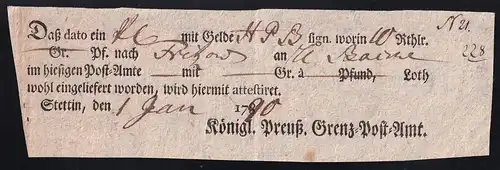 N 21.
Daß dato ein mit Gelde H P B sign. worin 10 Rthlr. 228
Gr. Pf. nach an
im hiesigen Post-Amte — mit — Gr. à — Pfund, — Loth
wohl eingeliefert worden, wird hiermit attestiret.
Stettin, den 1 Jan 1790
Königl. Preuß. Grenz-Post-Amt.